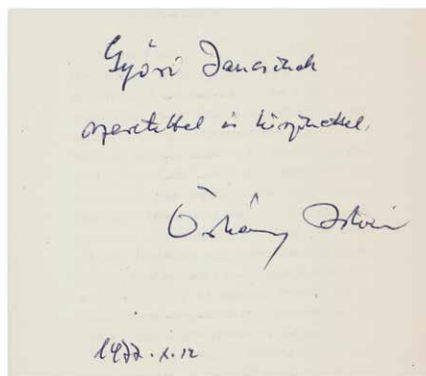 Győri Jancsinak
szeretettel és köszönettel,
Örkény István
1972. X. 12